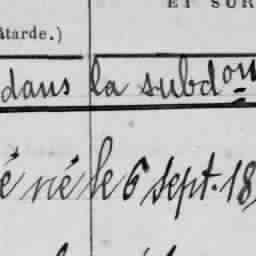 ET SUR
âtarde.)
dans la subdon
é né le 6 sept. 18